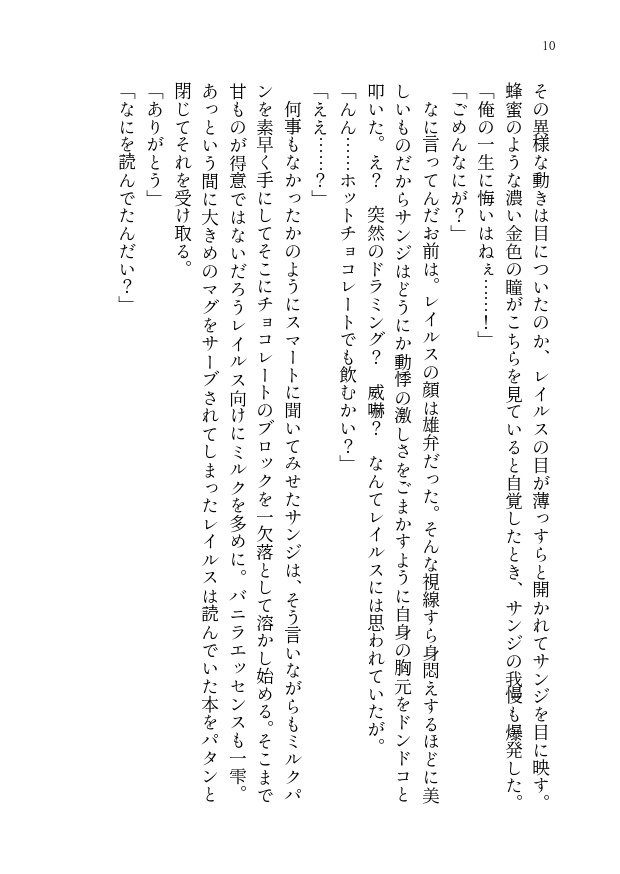 10
その異様な動きは目についたのか、レイルスの目が薄っすらと開かれてサンジを目に映す。
蜂蜜のような濃い金色の瞳がこちらを見ていると自覚したとき、サンジの我慢も爆発した。
「俺の一生に悔いはねぇ……！」
「ごめんなにが？」
なに言ってんだお前は。レイルスの顔は雄弁だった。そんな視線すら身悶えするほどに美
しいものだからサンジはどうにか動悸の激しさをごまかすように自身の胸元をドンドコと
叩いた。え？　突然のドラミング？　威嚇？　なんてレイルスには思われていたが。
「んん……ホットチョコレートでも飲むかい？」
「ええ……？」
何事もなかったかのようにスマートに聞いてみせたサンジは、そう言いながらもミルクパ
ンを素早く手にしてそこにチョコレートのブロックを一欠落として溶かし始める。そこまで
甘ものが得意ではないだろうレイルス向けにミルクを多めに。バニラエッセンスも一雫。
あっという間に大きめのマグをサーブされてしまったレイルスは読んでいた本をパタンと
閉じてそれを受け取る。
「ありがとう」
「なにを読んでたんだい？」